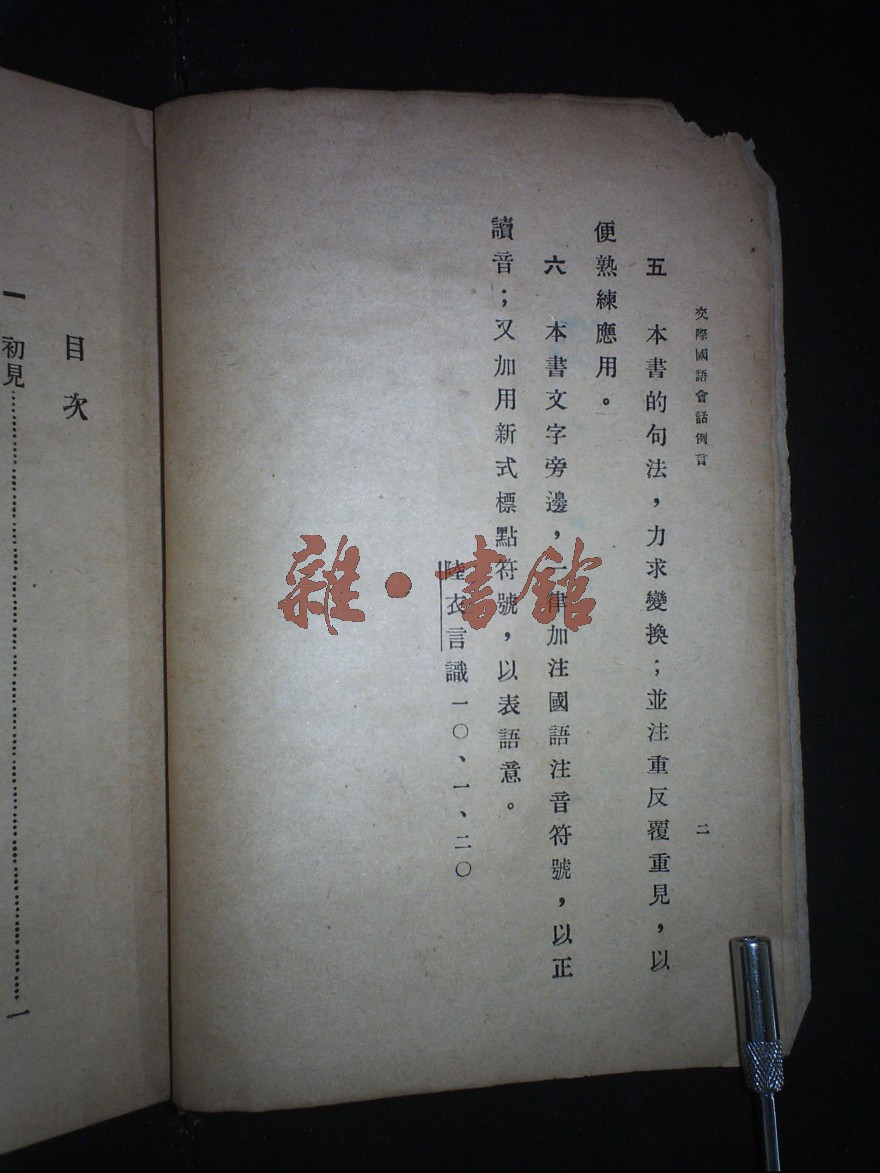 交際國語會話例言
二
五　本書的句法，力求變換；並注重反覆重見，以
便熟練應用。
六　本書文字旁邊，一律加注國語注音符號，以正
讀音；又加用新式標點符號，以表語意。
陸衣言識一〇、一、二〇
目次
一　初見……………………………………一
雜·書館